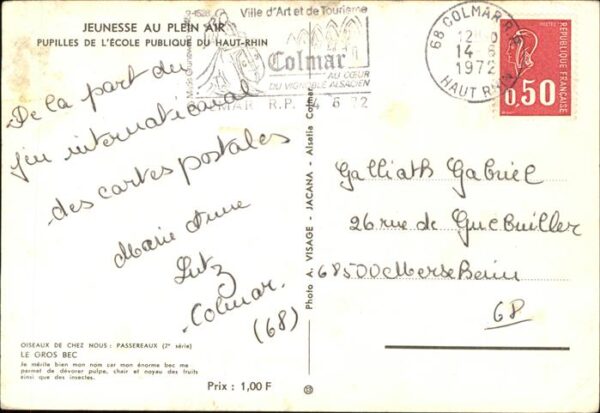 JEUNESSE AU PLEIN AIR
PUPILLES DE L'ÉCOLE PUBLIQUE DU HAUT-RHIN
Ville d'Art et de Tourisme
Colmar
AU CŒUR
DU VIGNOBLE ALSACIEN
COLMAR R.P. 14 6 72
68 COLMAR R.P.
14-6
1972
HAUT RHIN
POSTES
RÉPUBLIQUE FRANÇAISE
0,50
De la part du
jeu international
des cartes postales
Marie Anne
Lutz
Colmar
(68)
Photo A. VISAGE - JACANA - Alsatia Colmar
Galliath Gabriel
26 rue de Guebwiller
68500 Merxheim
68
OISEAUX DE CHEZ NOUS : PASSEREAUX (2e série)
LE GROS BEC
Je mérite bien mon nom car mon énorme bec me
permet de dévorer pulpe, chair et noyau des fruits
ainsi que des insectes.
Prix : 1,00 F